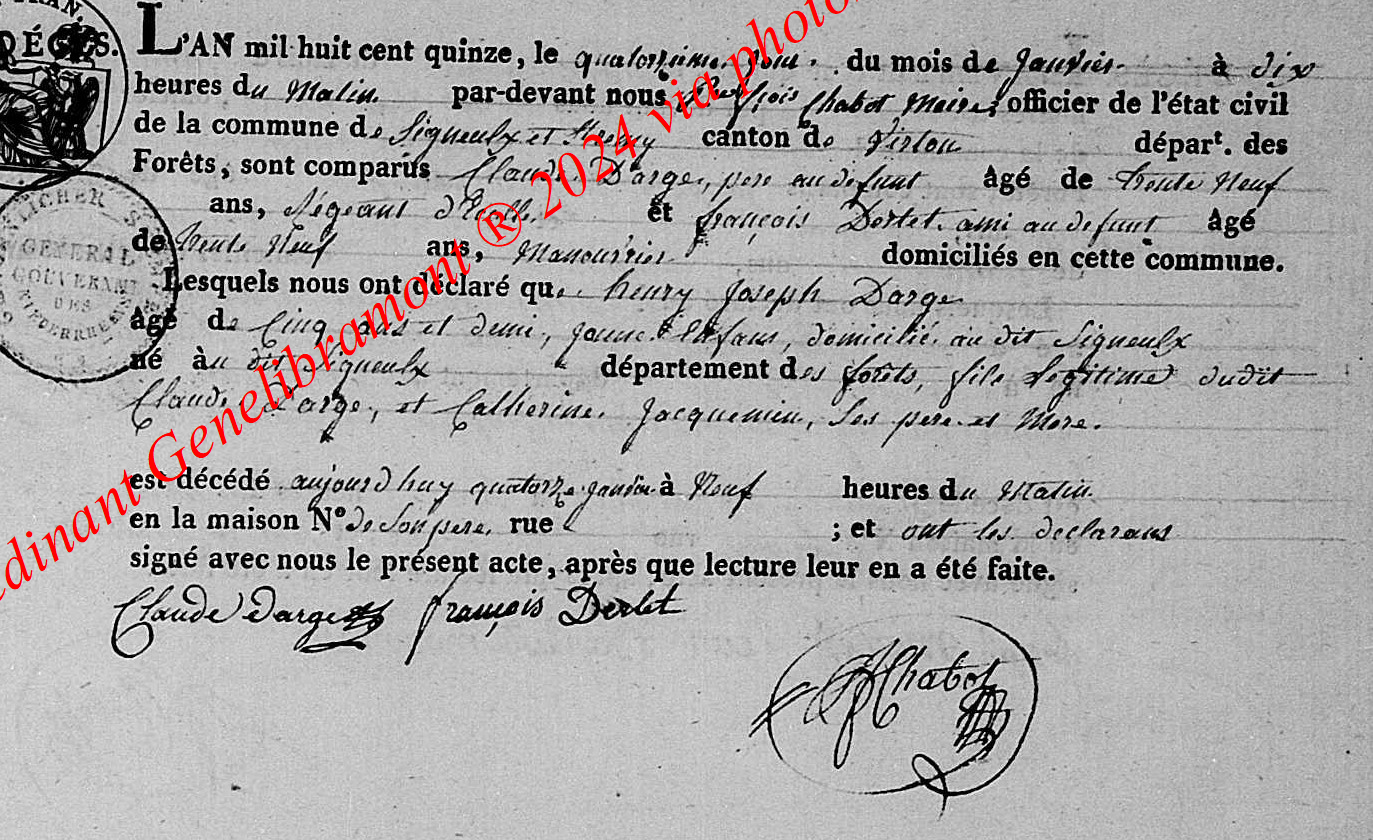 DÉGES.
L'AN mil huit cent quinze, le quatorzieme jour. du mois de Janvier. à dix
heures du Matin. par-devant nous Chabot Maire, officier de l'état civil
de la commune de Signeulx et canton de Virton départ. des
Forêts, sont comparus Claude D'arge, pere au defunt âgé de trente Neuf
ans, Régeant d'Ecolle et françois Derlet ami au defunt âgé
de trente Neuf ans, Manouvrier domiciliés en cette commune.
Lesquels nous ont déclaré que henry Joseph Darge
âgé de Cinq ans et demi, jeune Enfans, domicilié au dit Signeulx
né à u dit Signeulx département des forêts, fils legitime dudit
Claude D'arge, et Catherine Jacquemin, Ses pere et Mere.
est décédé aujourd'huy quatorze janvier à Neuf heures du Matin
en la maison N° de Son pere, rue ; et ont les declarans
signé avec nous le présent acte, après que lecture leur en a été faite.
Claude Darge françois Derlet
Chabot
GENERAL
GOUVERNEMENT
DES
dinant Genelibramont ® 2024 via photo